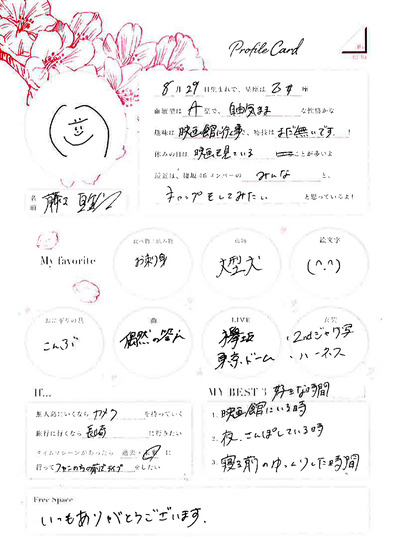 Profile Card
8月29日生まれで、星座は乙女座
血液型はA型で、自由気ままな性格かな
趣味は映画館に行く事で、特技はまだ無いです！
休みの日は映画を見ていることが多いよ
最近は、欅坂46メンバーのみんなと、
キャップをしてみたいと思っているよ！
名前 藤
My favorite
食べ物/飲み物
お刺身
動物
大型犬
絵文字
(^.^)
おにぎりの具
こんぶ
曲
偶然の答え
LIVE
欅坂
東京ドーム
衣装
・2ndジャケ写
・ハーネス
If...
無人島にいくならカメラを持っていく
旅行に行くなら長崎に行きたい
タイムマシーンがあったら過去・に
行ってしたい
MY BEST 3 好きな時間
1. 映画館にいる時
2. 夜、さんぽしている時
3. 寝る前のゆっくりした時間
Free Space
いつもありがとうございます.